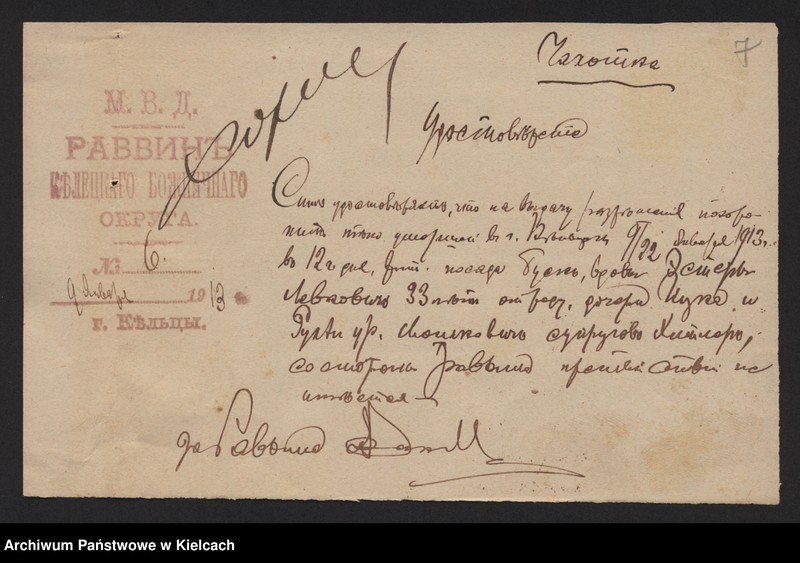 Чахотка
7
М. В. Д.
РАВВИНЪ
КѢЛЕЦКАГО БОЖНИЧНАГО
ОКРУГА.
№ 6.
9 Января 1913 г.
г. Кѣльцы.
Удостовѣреніе
Симъ удостовѣряю, что на выдачу разрѣшенія похоро-
нить тѣло умершей въ г. 9/22 Января 1913 г.
въ 12 ч. дня, жит. посада Буско, вдовы Эстеры
Левковичъ 33 лѣтъ отъ роду, дочери Ицка и
ур. Мошковичъ супруговъ
со стороны Раввина препятствій не
имѣется
за Раввина
Archiwum Państwowe w Kielcach